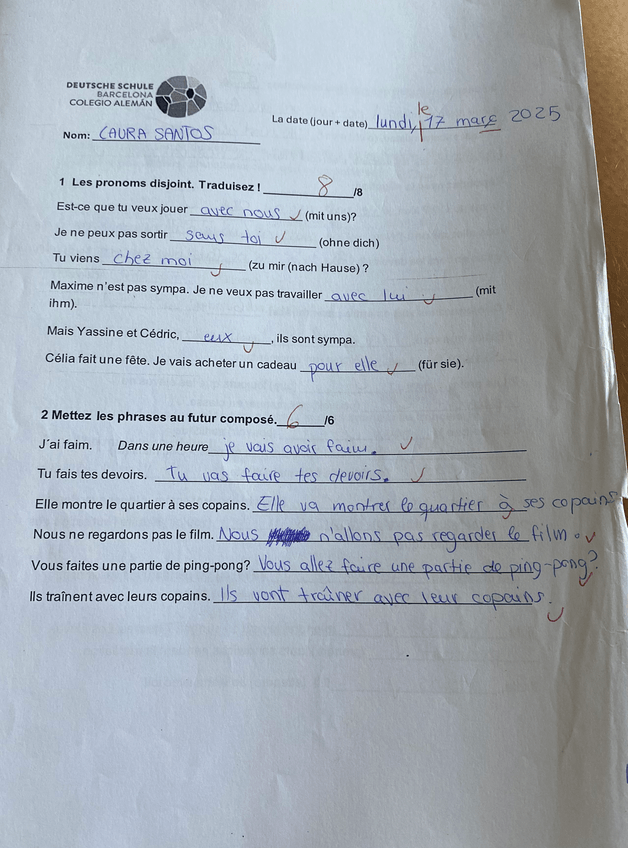 DEUTSCHE SCHULE
BARCELONA
COLEGIO ALEMÁN
le
La date (jour + date) lundi, 17 març 2025
Nom: LAURA SANTOS
1 Les pronoms disjoint. Traduisez ! 8 /8
Est-ce que tu veux jouer avec nous (mit uns)?
Je ne peux pas sortir sans toi (ohne dich)
Tu viens chez moi (zu mir (nach Hause) ?
Maxime n'est pas sympa. Je ne veux pas travailler avec lui (mit
ihm).
Mais Yassine et Cédric, eux, ils sont sympa.
Célia fait une fête. Je vais acheter un cadeau pour elle (für sie).
2 Mettez les phrases au futur composé. 6 /6
J´ai faim. Dans une heure je vais avoir faim.
Tu fais tes devoirs. Tu vas faire tes devoirs.
Elle montre le quartier à ses copains. Elle va montrer le quartier à ses copains
Nous ne regardons pas le film. Nous n'allons pas regarder le film.
Vous faites une partie de ping-pong? Vous allez faire une partie de ping-pong?
Ils traînent avec leurs copains. Ils vont traîner avec leur copains.